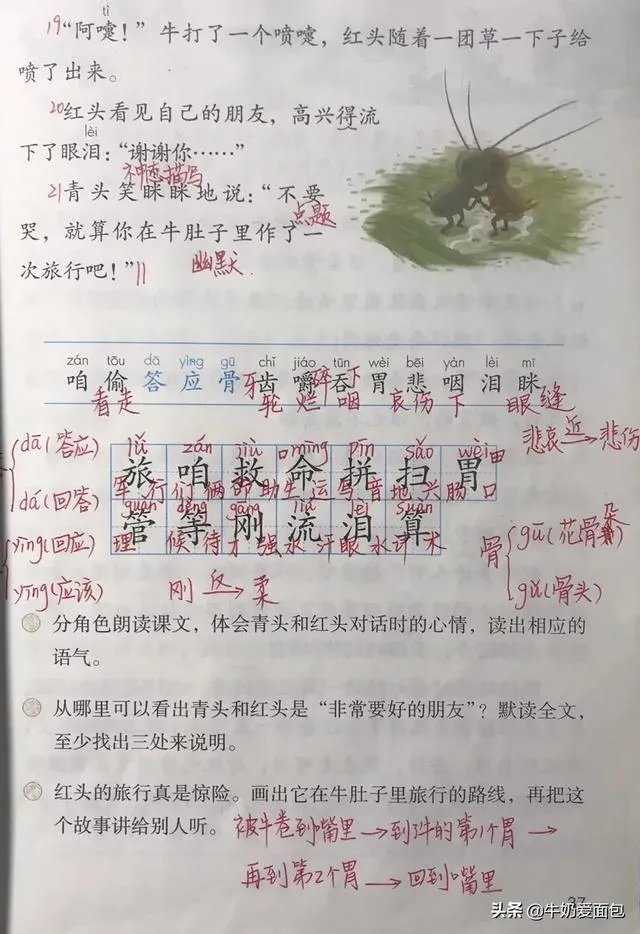 tì
19“阿嚏！”牛打了一个喷嚏，红头随着一团草一下子给
喷了出来。
20红头看见自己的朋友，高兴得流
lèi
下了眼泪：“谢谢你……”
神态描写
21青头笑眯眯地说：“不要
点题
哭，就算你在牛肚子里作了一
次旅行吧！”
幽默
zán tōu dā yìng gǔ chǐ jiáo tūn wèi bēi yàn lèi mī
咱 偷 答 应 骨 齿 嚼 吞 胃 悲 咽 泪 眯
牙 碎 下
看 走 轮 烂 咽 哀伤 下 眼缝
悲哀 近→ 悲伤
dā(答应)
dá(回答)
lǚ zán jiù mìng pīn sǎo wèi
旅 咱 救 命 拼 扫 胃
军 行 们 俩 命 助 生 运 写 音 地 兴 肠 口
guǎn děng gāng liú lèi suàn
管 等 刚 流 泪 算
理 候 待 才 强 水 汗 眼 水 计 术
yìng(回应)
yīng(应该)
刚 反→ 柔
骨
gū(花骨朵)
gǔ(骨头)
分角色朗读课文，体会青头和红头对话时的心情，读出相应的
语气。
从哪里可以看出青头和红头是“非常要好的朋友”？默读全文，
至少找出三处来说明。
红头的旅行真是惊险。画出它在牛肚子里旅行的路线，再把这
个故事讲给别人听。
被牛卷到嘴里→到牛的第1个胃→
再到第2个胃→回到嘴里
37
头条 @牛奶爱面包